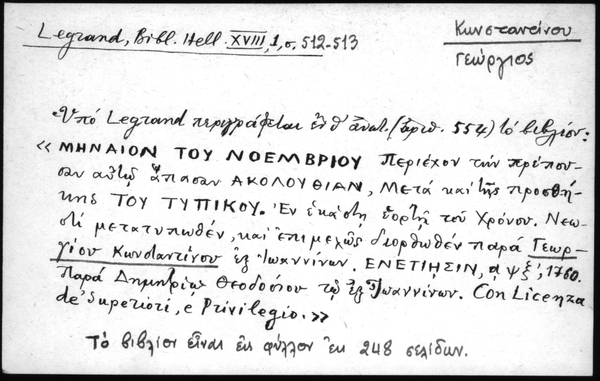 Legrand, Bibl. Hell. XVIII, 1, σ. 512-513
Κωνσταντίνου
Γεώργιος
Ὑπό Legrand περιγράφεται ἐν θ' ἀνατ. (ἀριθ. 554) τό βιβλίον:
« ΜΗΝΑΙΟΝ ΤΟΥ ΝΟΕΜΒΡΙΟΥ Περιέχον τήν πρέπου-
σαν αὐτῷ ἅπασαν ΑΚΟΛΟΥΘΙΑΝ, Μετά καί τῆς προσθή-
κης ΤΟΥ ΤΥΠΙΚΟΥ. Ἐν ἑκάστῃ ἑορτῇ τοῦ Χρόνου. Νεω-
στί μετατυπωθέν, καί ἐπιμελῶς διορθωθέν παρά Γεωρ-
γίου Κωνσταντίνου ἐξ Ἰωαννίνων. ΕΝΕΤΙΗΣΙΝ, α ψ ξ', 1760.
Παρά Δημητρίῳ Θεοδοσίου τῷ ἐξ Ἰωαννίνων. Con Licenza
de' Superiori, è Privilegio. »
Τό βιβλίον εἶναι εἰς φύλλον ἐκ 248 σελίδων.